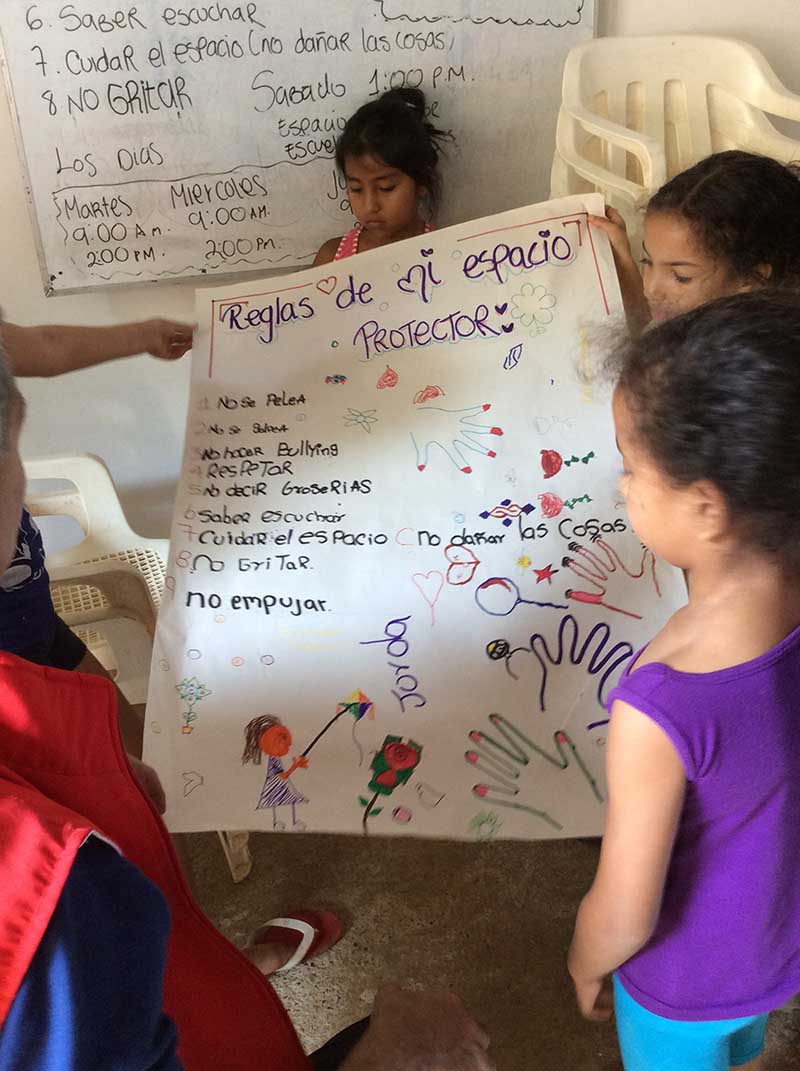 6. SABER escuchar
7. Cuidar el espacio (no dañar las cosas)
8 NO GRitar
Sabado 1:00 P.M.
Espacio
Los Dias
Martes Miercoles
9:00 Am. 9:00 AM.
2:00 PM. 2:00 Pm.
Reglas de mi espacio
PROTECTOR
1 No se PeleA
2 No se
3 No hacer Bullying
4 RESPETAR
5 No deciR GroseRiAS
6 Saber escuchar
7 Cuidar el espacio (no dañar las cosas.
8 no GriTaR.
no empujar.